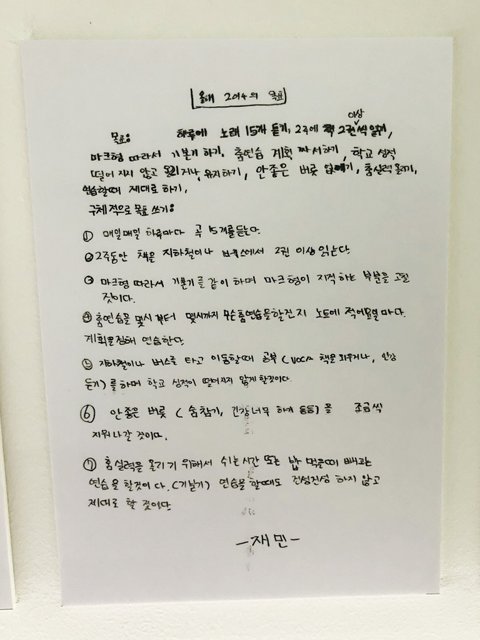 올해 2014의 목표
이상
목표: 하루에 노래 15개 듣기, 2주에 책 2권씩 읽기,
마크형 따라서 기본기 하기, 춤연습 계획 짜서하기, 학교 성적
떨어지지 않고 올리거나, 유지하기, 안좋은 버릇 없애기, 춤실력 올리기,
연습할때 제대로 하기,
구체적으로 목표 쓰기:
① 매일매일 하루마다 곡 15개를듣는다.
② 2주동안 책은 지하철이나 버스에서 2권 이상 읽는다.
③ 마크형 따라서 기본기를 같이 하며 마크형이 지적하는 부분을 고칠
것이다.
④ 춤연습을 몇시부터 몇시까지 무슨춤연습을할건지 노트에 적어놓을 때마다.
계획을정해 연습한다.
⑤ 지하철이나 버스를 타고 이동할때 공부 (VOCA 책을 외우거나, 인강
듣기)를 하며 학교 성적이 떨어지지 않게 할것이다.
⑥ 안좋은 버릇 (숨참기, 긴장너무 하기 등등)을 조금씩
지워나갈 것이다.
⑦ 춤실력을 올리기 위해서 쉬는시간 또는 밥 먹을때 빼고는
연습을 할것이다. (기본기) 연습을 할때도 건성건성 하지 않고
제대로 할 것이다
-재민-